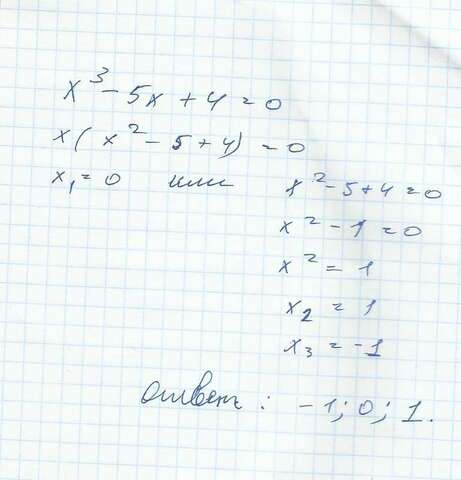 x³ - 5x + 4 = 0
x(x² - 5 + 4) = 0
x₁ = 0 или x² - 5 + 4 = 0
x² - 1 = 0
x² = 1
x₂ = 1
x₃ = -1
Ответ: -1; 0; 1.